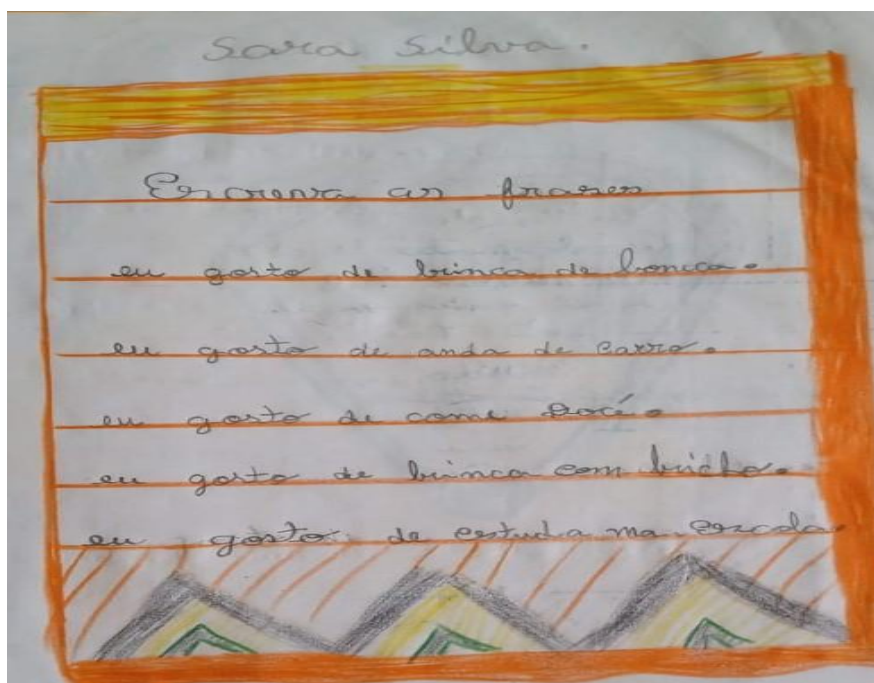 Sara Silva.
Escreva as frases
eu gosto de brinca de boneca.
eu gosto de anda de carro.
eu gosto de come docé.
eu gosto de brinca com bricho.
eu gosto de estuda na escola.